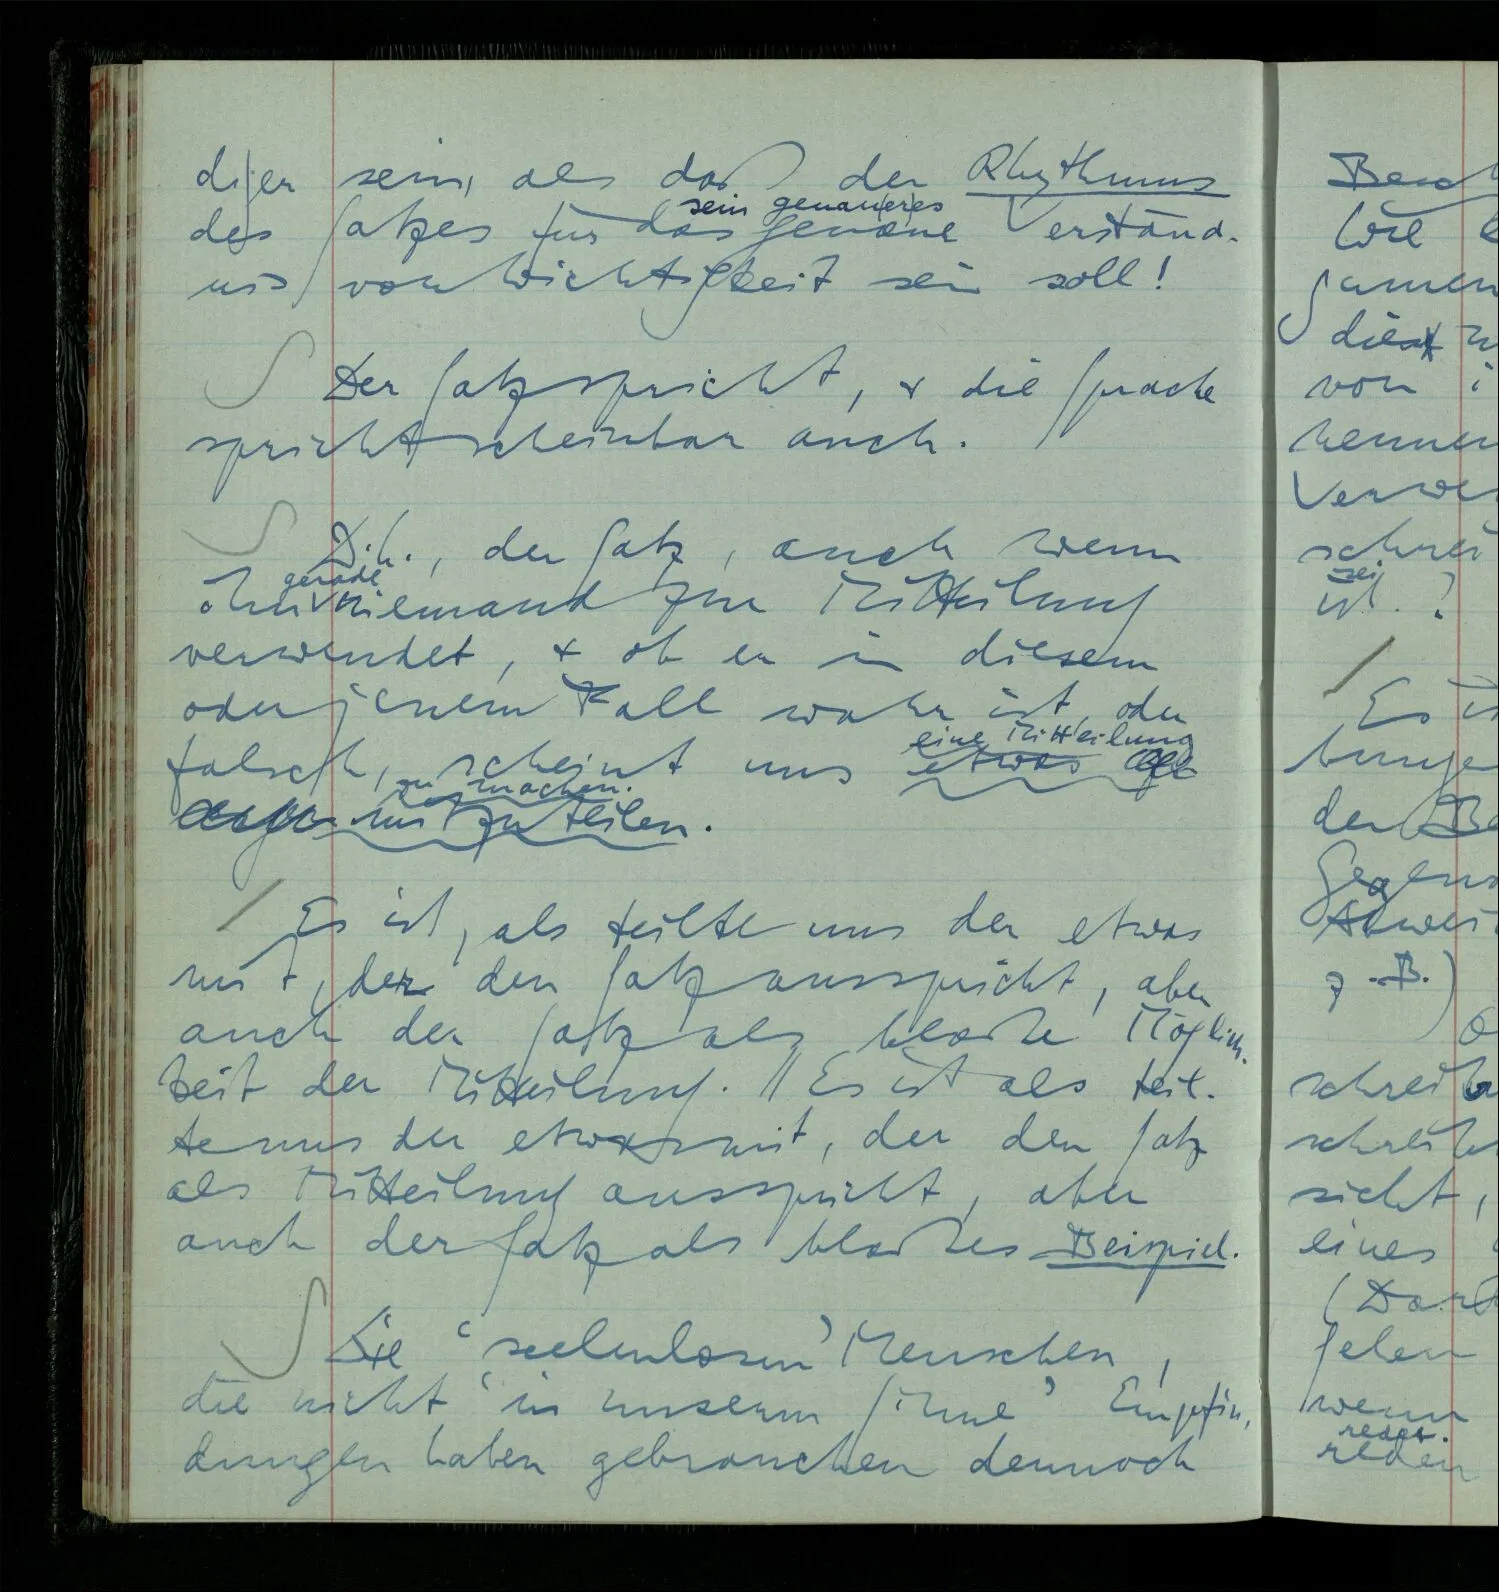 diger sein, als daß der Rhythmus
sein genaueres
des Satzes für das genaue Verständ-
nis von Wichtigkeit sein soll!
Der Satz spricht, & die Sprache
spricht scheinbar auch.
D.h., der Satz, auch wenn
gerade
ihn niemand zur Mitteilung
verwendet, & ob er in diesem
oder jenem Fall wahr ist, oder
eine Mitteilung
falsch, scheint uns etwas
zu machen.
mitzuteilen.
Es ist, als teilte uns der etwas
mit, der den Satz ausspricht, aber
auch der Satz als bloße Möglich-
keit der Mitteilung. // Es ist als teil-
te uns der etwas mit, der den Satz
als Mitteilung ausspricht, aber
auch der Satz als bloßes Beispiel.
Die ‘seelenlosen’ Menschen,
die nicht ‘in unserm Sinne’ Empfin-
dungen haben gebrauchen dennoch
Wie
von
schrei
sei
ist. ?
Es is
der Be
Gegens
z.B.)
schreib
schreib
sieht,
eines
(Dar
wenn
redet.
reden